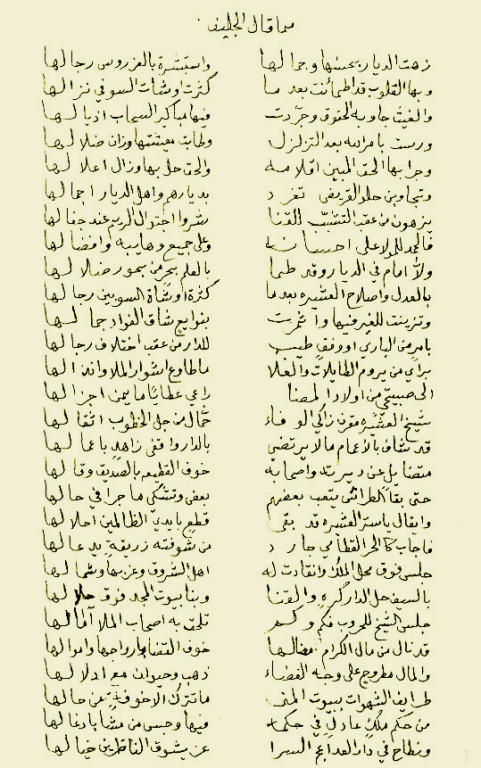 مما قال الخليف
زهت الديار بحسنها وجمالها واستبشرة بالعز روس رجالها
وبها القلوب قد اطمأنت بعد ما كثرت اوشات السو في نزالها
والغيث جاد به الحقوق وجردت فيها مباكر السحاب اذيالها
ورست بامر الله بعد التزلزل وطابت معيشتها وزان ضلالها
وجرا بها الحق المبين اقلامه والحق حل بها وزال اعلالها
وتجاوبن حلو القريض تغرد بديارهم واهل الديار اجمالها
يزهون من عقب التشتت للقنا
فالحمد للمولا على احسانه وعلى جميع وهايبه وافضالها
ولا امام في الديار وقد طما بالعلم بحر من بحور ضلالها
بالعدل واصلاح العشيره بعد ما كثرة اوشاة السو بين رجالها
وتزينت للغير فيها واثمرت بنوايع شاق الفواد جمالها
بامر من الباري اووفق طيب للدار من عقب اختلاف رجالها
براي من يروم الطايلات والعلا ما طاوع اشوار الملا وانذالها
الى صبيتي من اولاد المهنا راعي عطايا ما يمن اجزالها
شيخ العشيره مقرن زاكي الوفاء حمال من جل الخطوب اثقالها
قد شاف بالاعمام ما لا يرتضي بالدار واقفى زاهد باعمالها
متضايل عن ديرته واصحابه خوف القطيعه بالصديق وقالها
حتى بقا الطرائق يتعب بعضهم بعض وتشكي ما جرا في حالها
وايقال ياستر العشيره قد بقى قطع بايدي الظالمين احلالها
فاجاب كالحر القطامي جارد من شوفته زريفة يدعالها
جلس فوق محل الملك وانقادت له اهل الشروق وعزبها وشمالها
بالسيف حل الدار كره والقنا وبنا بيوت المجد فوق حلالها
جلس الشيخ للحروب فكم وكم تلحق به اصحاب الملا آمالها
قد نال من مال الكرام افضالها خوف القضا بارواحها واموالها
والمال مطروح على وجه الفضاء ذهب وحيوان مع ادلالها
طرايف الشهوات ببيوت المنى ما تترك الا خوف من حالها
من حكم ملك عادل في حكمه فيها وحبس من مشا بادغالها
ونطاح في دار العدا عجم السرا عز يشوق الناظرين خيالها